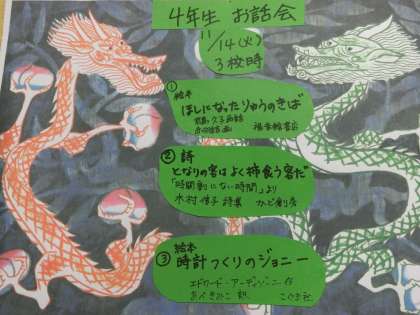 4年生 お話会
11/14(火)
3校時
① 絵本
ほしになったりゅうのきば
君島久子再話
赤羽末吉画 福音館書店
② 詩
となりの客はよく柿食う客だ
「時間割にない時間」より
木村信子詩集 かど創房
③ 絵本
時計つくりのジョニー
エドワード・アーディゾーニ作
あべきみこ訳 こぐま社